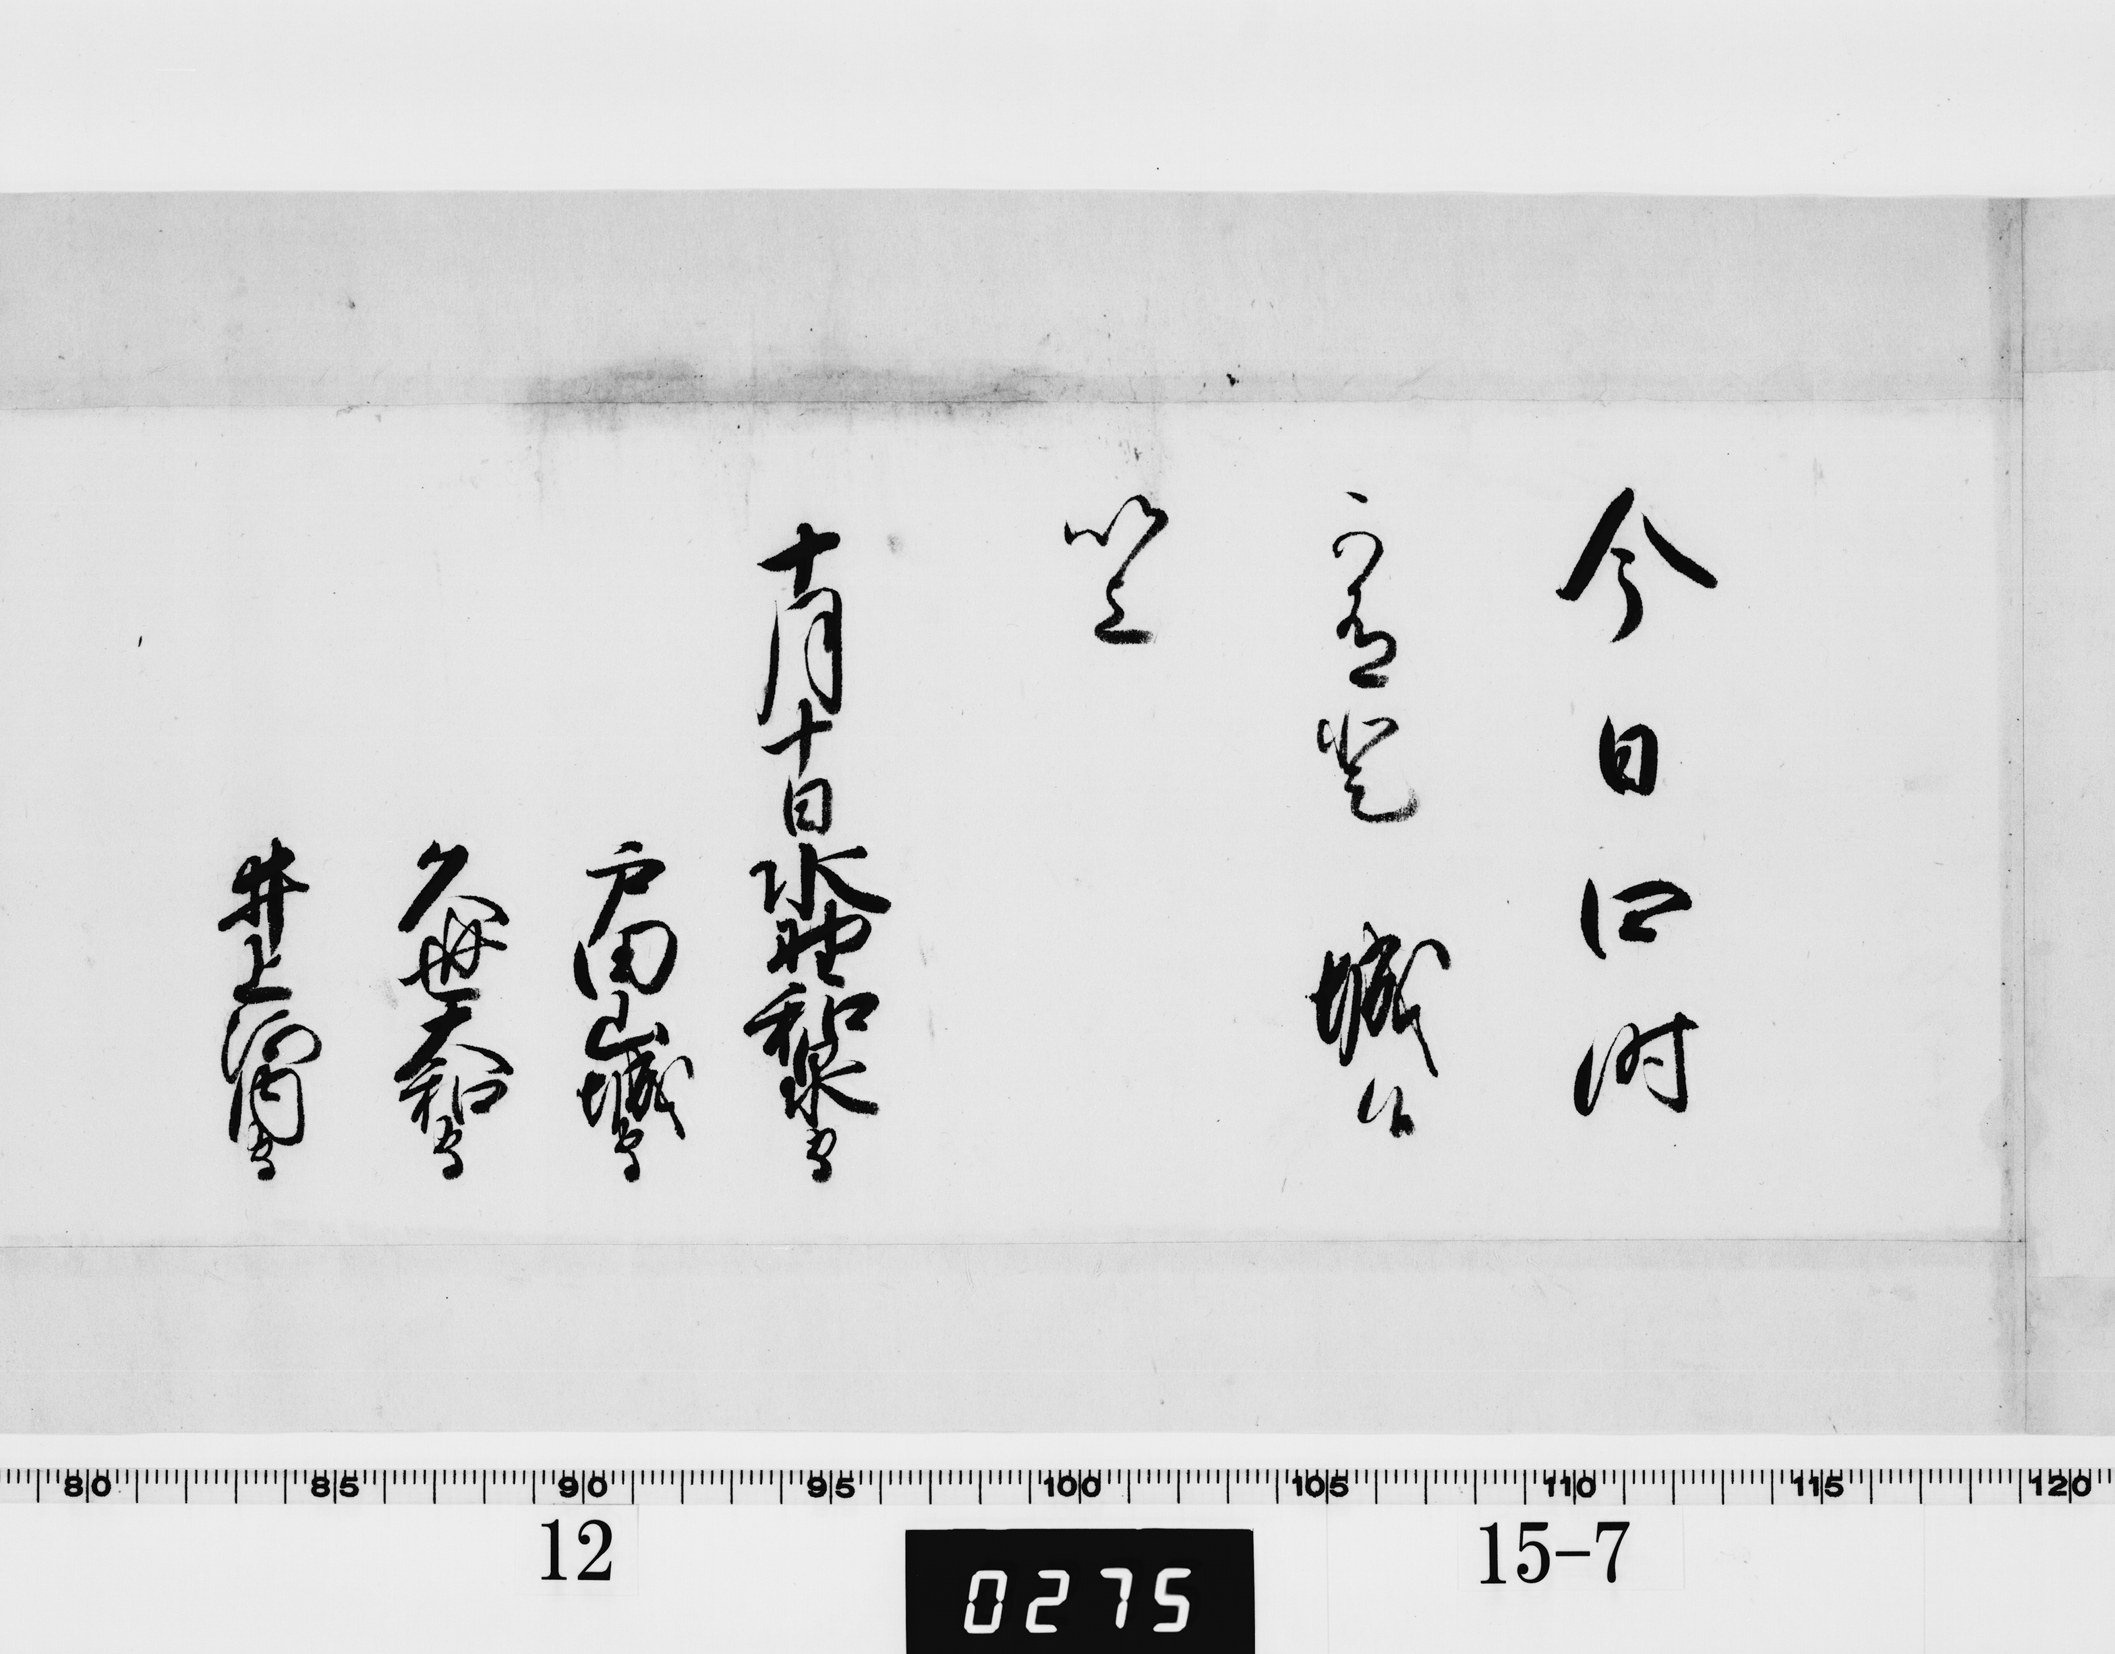 今日四時
可有登 城候
以上
十月十日 水野和泉守
戸田山城守
久世大和守
井上河内守
80 85 90 95 100 105 110 115 120
12
15-7
0275